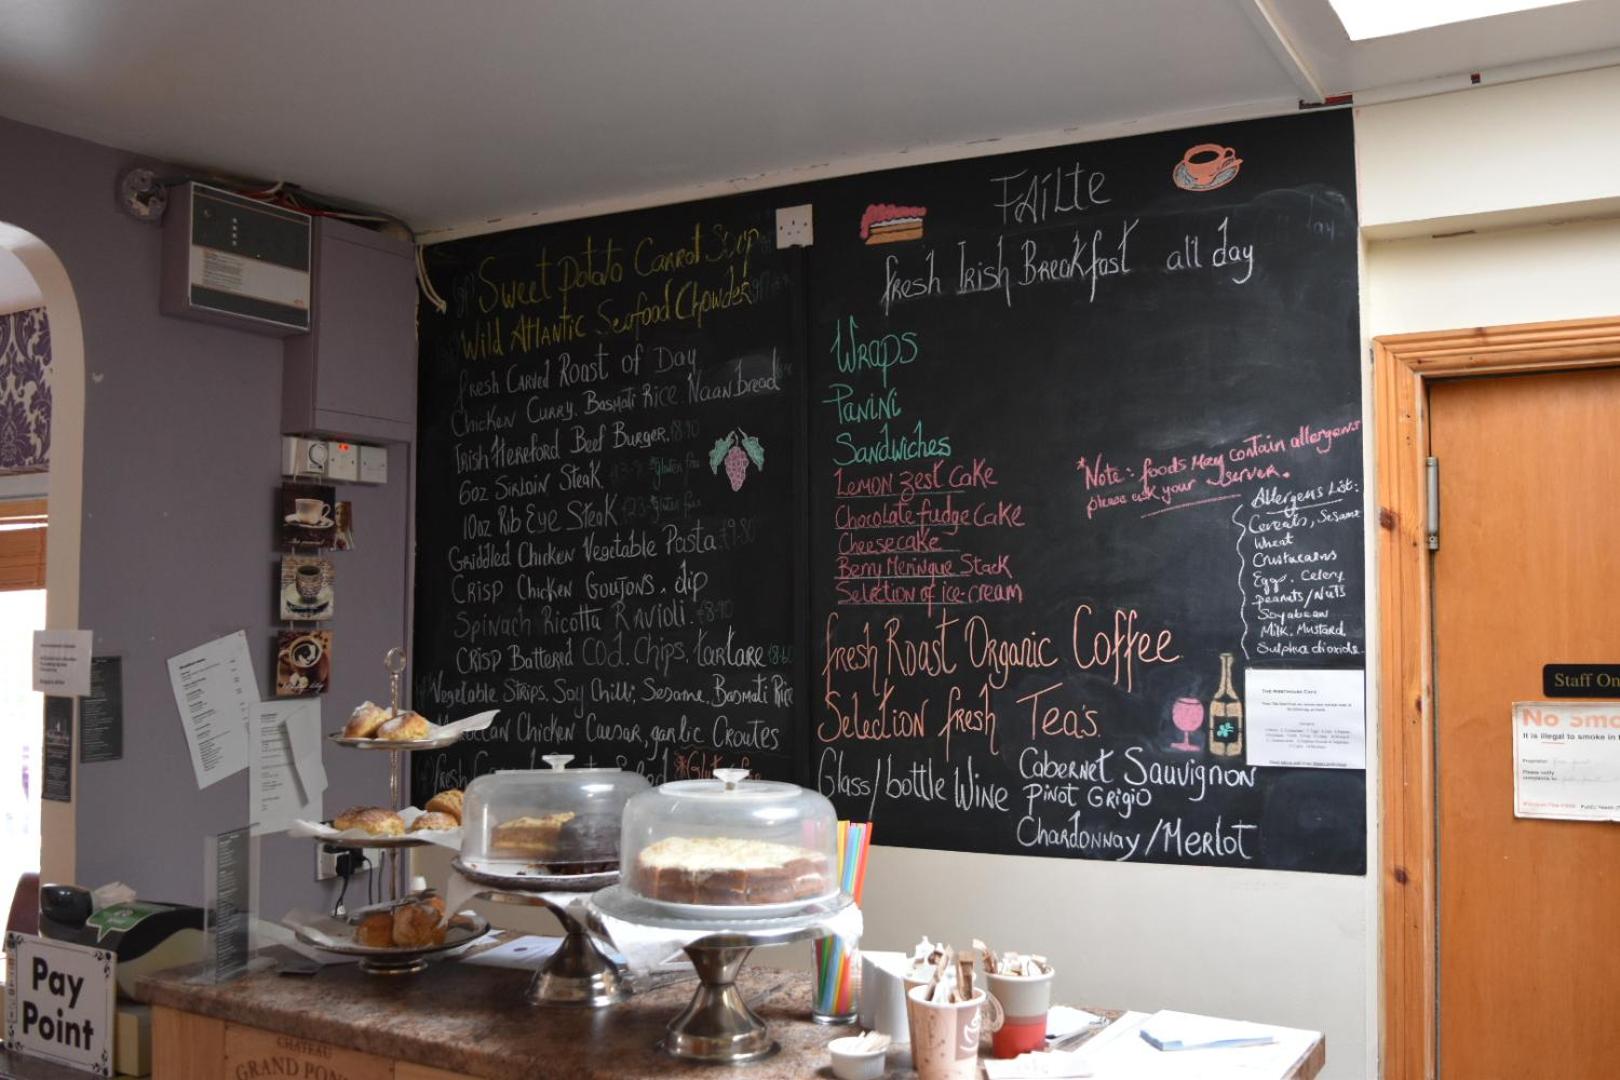 Sweet Potato Carrot Soup
Wild Atlantic Seafood Chowder
Fresh Carved Roast of Day
Chicken Curry. Basmati Rice. Naan bread
Irish Hereford Beef Burger.
6oz Sirloin Steak *gluten free
10oz Rib Eye Steak
Griddled Chicken Vegetable Pasta
Crisp Chicken Goujons, dip
Spinach Ricotta Ravioli.
Crisp Battered Cod. Chips. tartare
Vegetable Strips. Soy Chilli, Sesame. Basmati Rice
Chicken Caesar, garlic Croutes
Fresh
FAILTE
fresh Irish Breakfast all day
Wraps
Panini
Sandwiches
Lemon zest Cake
Chocolate fudge Cake
Cheesecake
Berry Meringue Stack
Selection of ice-cream
*Note: foods May contain allergens
please ask your server.
Allergens List:
Cereals, Sesame
Wheat
Crustaceans
Eggs. Celery
peanuts/Nuts
Soyabean
Milk. Mustard
Sulpha dioxide.
fresh Roast Organic Coffee
Selection fresh Tea's.
Glass/bottle Wine
Cabernet Sauvignon
Pinot Grigio
Chardonnay/Merlot
Staff On
No Smo
It is illegal to smoke in t
Pay
Point
CHATEAU
GRAND PON